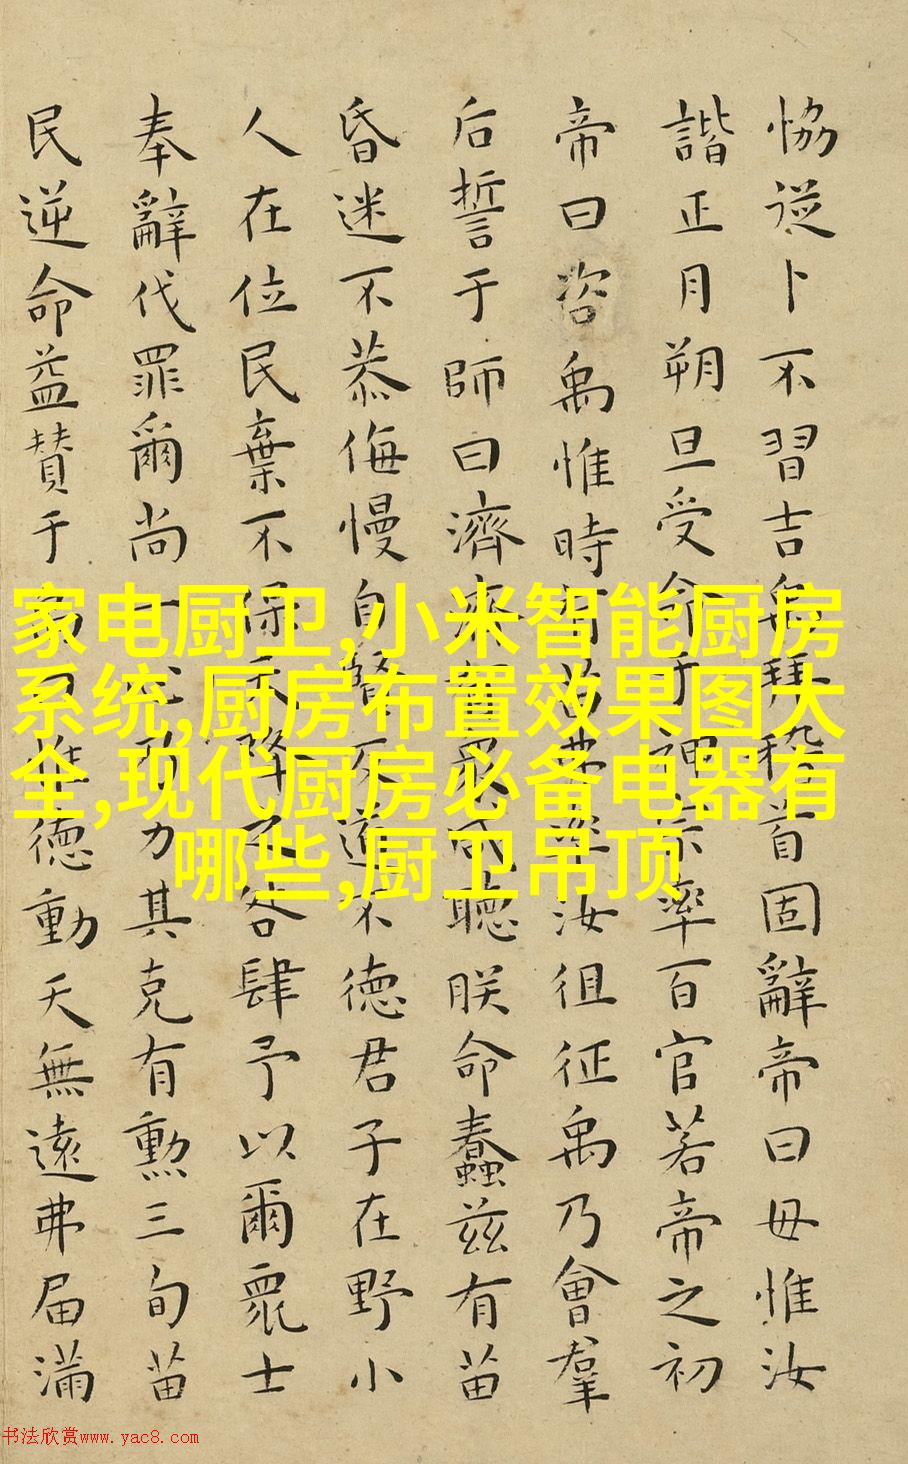 恊從卜不習吉禹拜稽首固辭帝曰毋惟汝
諧正月朔旦受命于神宗率百官若帝之初
帝曰咨禹惟時有苗弗率汝徂征禹乃會羣
后誓于師曰濟濟有眾咸聽朕命蠢茲有苗
昏迷不恭侮慢自賢反道不德君子在野小
人在位民棄不保天降不咎肆予以爾眾士
奉辭伐罪爾尚一乃力其克有勳三旬苗
民逆命益贊于禹曰惟德動天無遠弗届滿
家电厨卫,小米智能厨房
系统,厨房布置效果图大
全,现代厨房必备电器有
哪些,厨卫吊顶
书法欣赏www.yac8.com